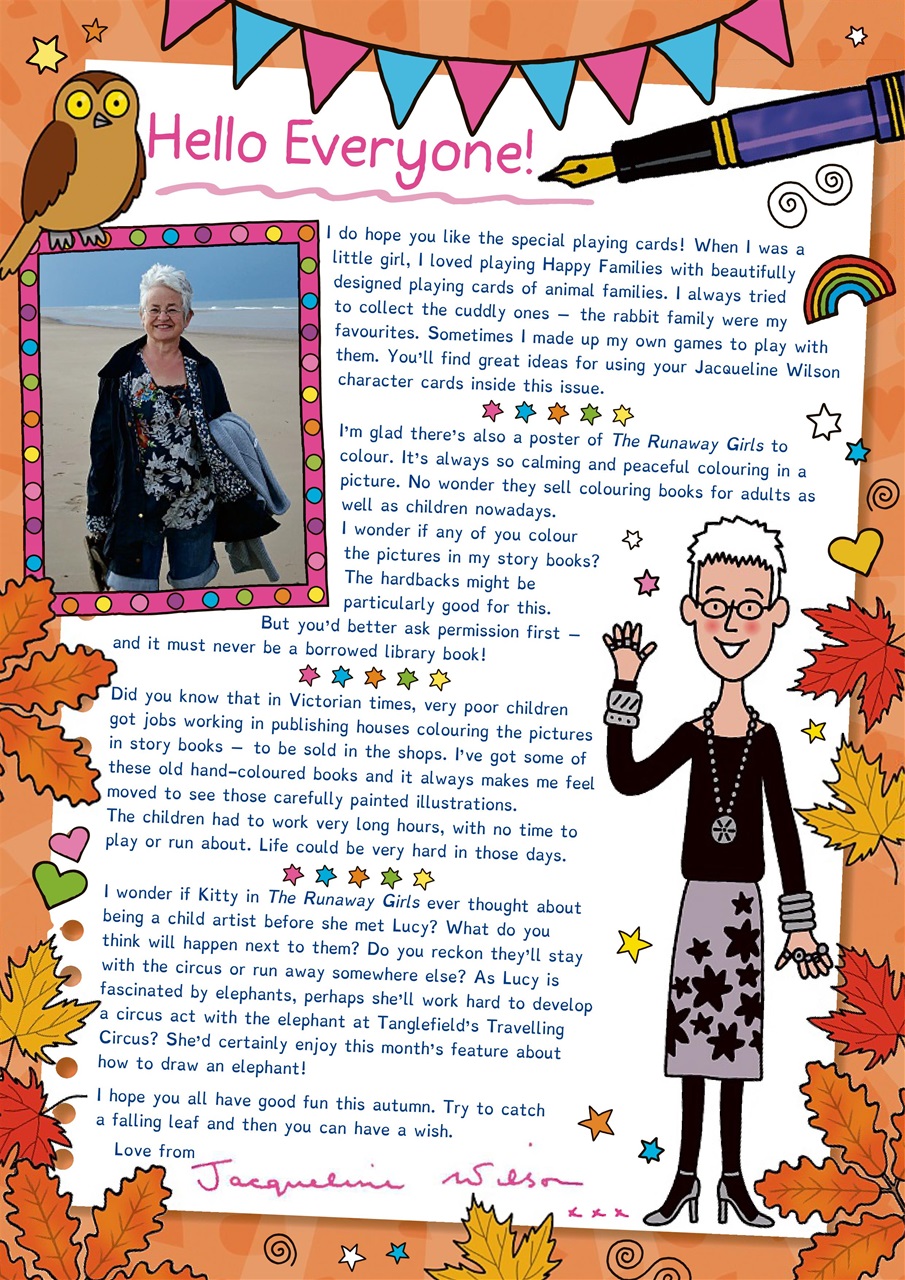 Hello Everyone!
I do hope you like the special playing cards! When I was a
little girl, I loved playing Happy Families with beautifully
designed playing cards of animal families. I always tried
to collect the cuddly ones – the rabbit family were my
favourites. Sometimes I made up my own games to play with
them. You'll find great ideas for using your Jacqueline Wilson
character cards inside this issue.
I'm glad there's also a poster of The Runaway Girls to
colour. It's always so calming and peaceful colouring in a
picture. No wonder they sell colouring books for adults as
well as children nowadays.
I wonder if any of you colour
the pictures in my story books?
The hardbacks might be
particularly good for this.
But you'd better ask permission first –
and it must never be a borrowed library book!
Did you know that in Victorian times, very poor children
got jobs working in publishing houses colouring the pictures
in story books – to be sold in the shops. I've got some of
these old hand-coloured books and it always makes me feel
moved to see those carefully painted illustrations.
The children had to work very long hours, with no time to
play or run about. Life could be very hard in those days.
I wonder if Kitty in The Runaway Girls ever thought about
being a child artist before she met Lucy? What do you
think will happen next to them? Do you reckon they'll stay
with the circus or run away somewhere else? As Lucy is
fascinated by elephants, perhaps she'll work hard to develop
a circus act with the elephant at Tanglefield's Travelling
Circus? She'd certainly enjoy this month's feature about
how to draw an elephant!
I hope you all have good fun this autumn. Try to catch
a falling leaf and then you can have a wish.
Love from
Jacqueline Wilson
x x x